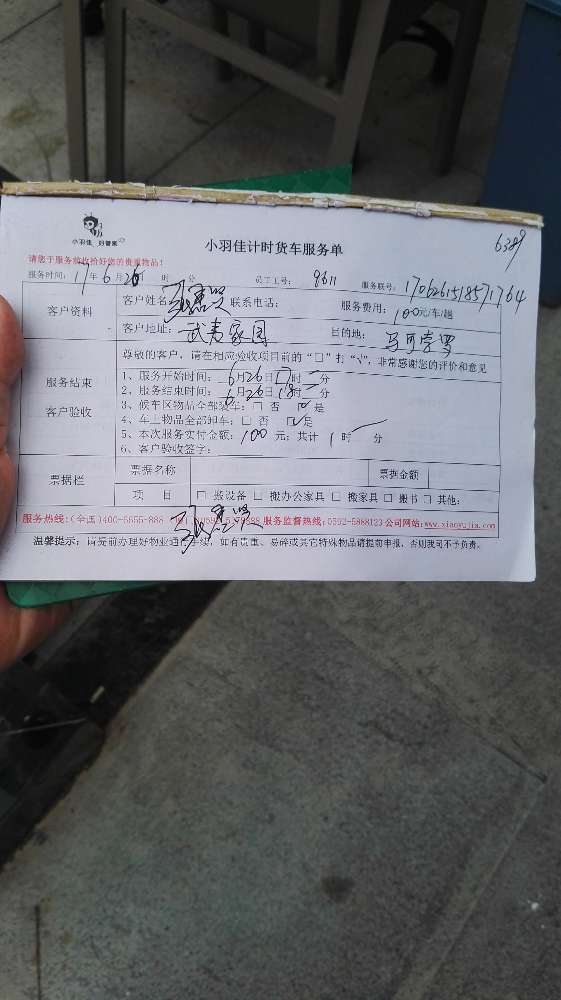 小羽佳 好管家
小羽佳计时货车服务单
6389
请您于服务前收拾好您的贵重物品!
服务时间: 17年 6月 26日 时 分 员工工号: 8611 服务联号: 1706261518571764
客户资料
客户姓名: 联系电话: 服务费用: 100元/车/趟
客户地址: 武夷家园 目的地: 马可孛罗
服务结束
客户验收
尊敬的客户,请在相应验收项目前的“□”打“√”,非常感谢您的评价和意见
1、服务开始时间: 6月26日17时 分
2、服务结束时间: 6月26日18时 分
3、候车区物品全部装车: □ 否 □是
4、车上物品全部卸车: □ 否 □是
5、本次服务实付金额: 100 元; 共计 1 时 分
6、客户验收签字:
票据栏
票据名称 票据金额
项 目 □ 搬设备 □ 搬办公家具 □ 搬家具 □ 搬书 □ 其他:
服务热线:(全国)400-6655-888 服务监督热线: 0592-5888123 公司网站: www.xiaoyujia.com
温馨提示: 请提前办理好物业通行手续, 如有贵重、易碎或其它特殊物品请提前申报, 否则我司不予负责。